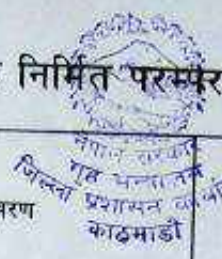 निर्मित परम्पर
नेपाल सरकार
गृह मन्त्रालय
जिल्ला प्रशासन का
रण
काठमाडौं